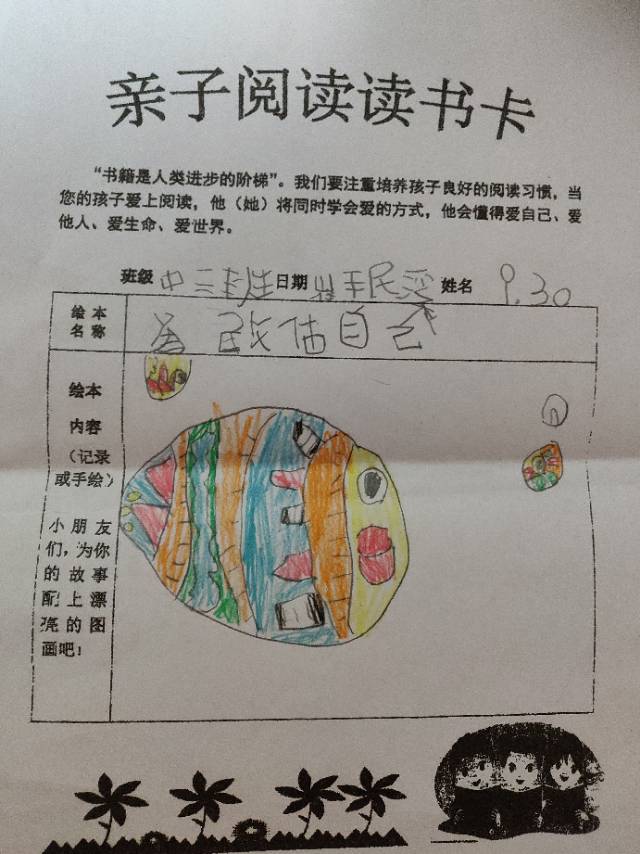 亲子阅读读书卡
“书籍是人类进步的阶梯”。我们要注重培养孩子良好的阅读习惯，当
您的孩子爱上阅读，他（她）将同时学会爱的方式，他会懂得爱自己、爱
他人、爱生命、爱世界。
班级 中三 日期 姓名 9.30
绘本
名称
自己
绘本
内容
（记录
或手绘）
小朋友
们，为你
的故事
配上漂
亮的图
画吧！